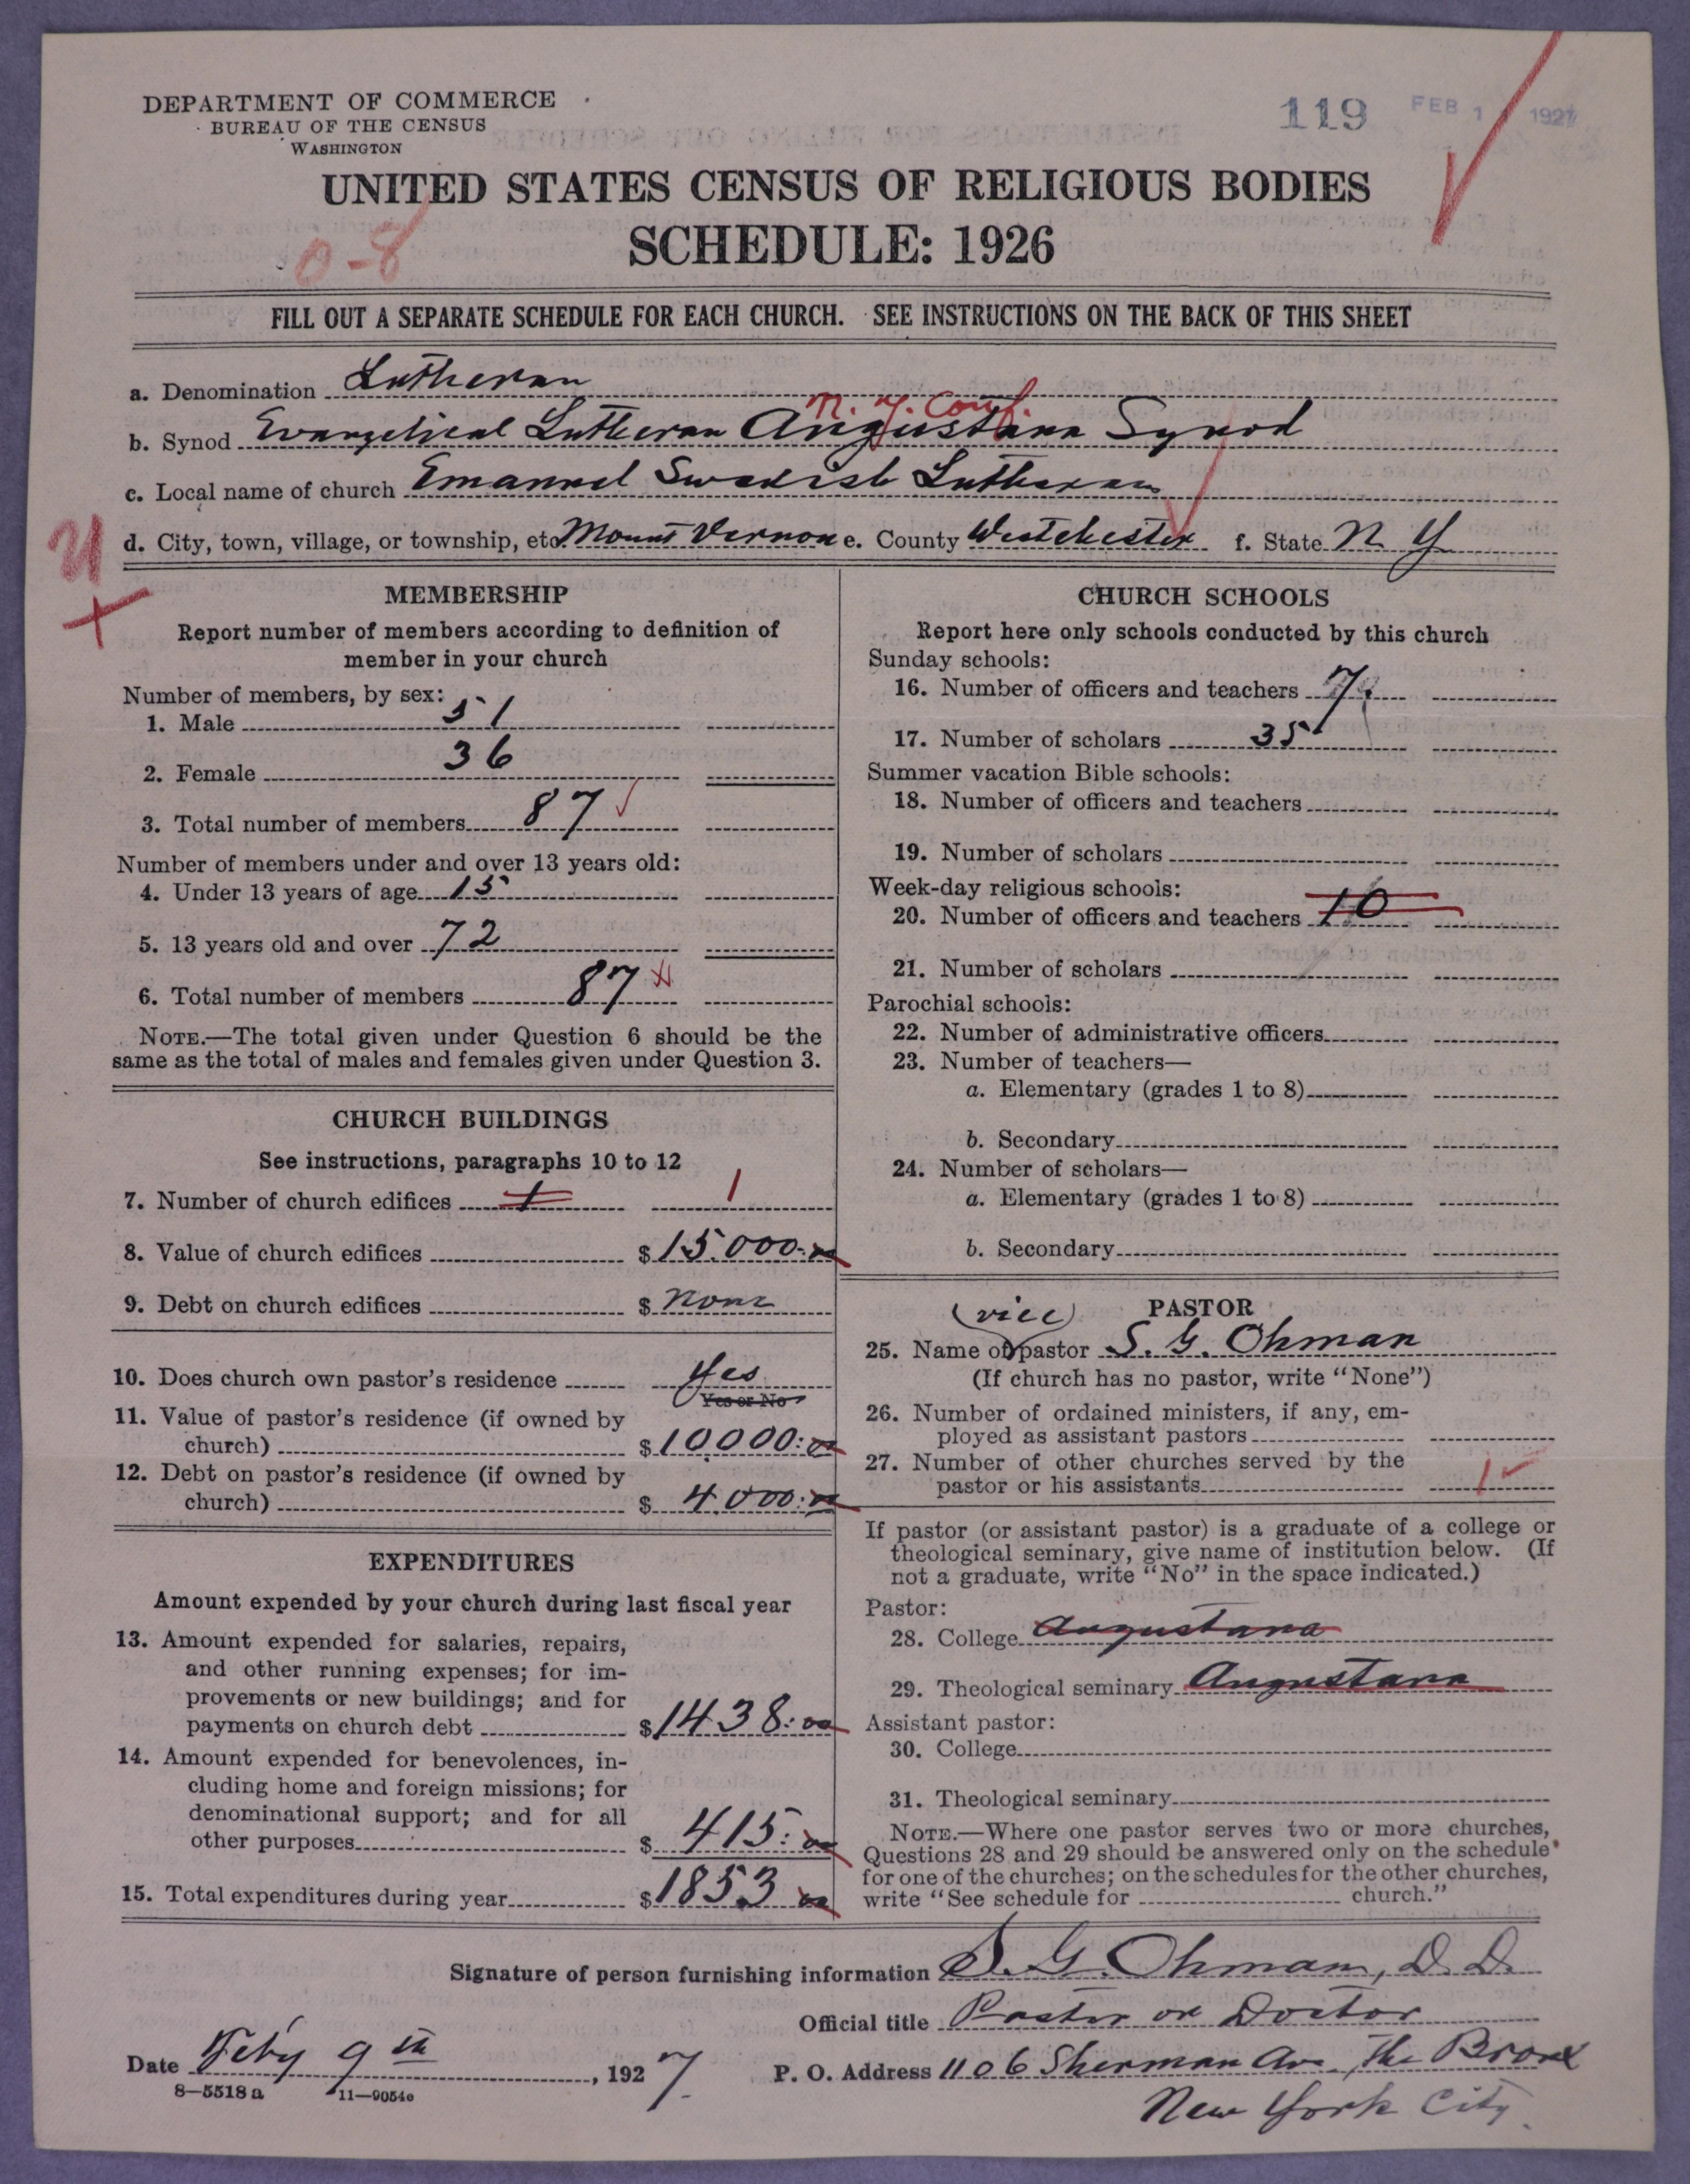 DEPARTMENT OF COMMERCE
BUREAU OF THE CENSUS
WASHINGTON
119 FEB 1 1927
UNITED STATES CENSUS OF RELIGIOUS BODIES
SCHEDULE: 1926
0-8
FILL OUT A SEPARATE SCHEDULE FOR EACH CHURCH. SEE INSTRUCTIONS ON THE BACK OF THIS SHEET
a. Denomination Lutheran
N. Y. Conf.
b. Synod Evangelical Lutheran Augustana Synod
c. Local name of church Emanuel Swedish Lutheran
d. City, town, village, or township, etc. Mount Vernon e. County Westchester f. State N Y
MEMBERSHIP
Report number of members according to definition of
member in your church
Number of members, by sex:
1. Male 51
2. Female 36
3. Total number of members 87
Number of members under and over 13 years old:
4. Under 13 years of age 15
5. 13 years old and over 72
6. Total number of members 87
NOTE.—The total given under Question 6 should be the
same as the total of males and females given under Question 3.
CHURCH BUILDINGS
See instructions, paragraphs 10 to 12
7. Number of church edifices 1 1
8. Value of church edifices $15.000:00
9. Debt on church edifices $ none
10. Does church own pastor's residence Yes
Yes or No
11. Value of pastor's residence (if owned by
church) $10000:00
12. Debt on pastor's residence (if owned by
church) $ 4.000:00
EXPENDITURES
Amount expended by your church during last fiscal year
13. Amount expended for salaries, repairs,
and other running expenses; for im-
provements or new buildings; and for
payments on church debt $1438:00
14. Amount expended for benevolences, in-
cluding home and foreign missions; for
denominational support; and for all
other purposes $ 415:00
15. Total expenditures during year $1853 00
CHURCH SCHOOLS
Report here only schools conducted by this church
Sunday schools:
16. Number of officers and teachers 7
17. Number of scholars 35
Summer vacation Bible schools:
18. Number of officers and teachers
19. Number of scholars
Week-day religious schools:
20. Number of officers and teachers 10
21. Number of scholars
Parochial schools:
22. Number of administrative officers
23. Number of teachers—
a. Elementary (grades 1 to 8)
b. Secondary
24. Number of scholars—
a. Elementary (grades 1 to 8)
b. Secondary
PASTOR
(vice)
25. Name of pastor S. G. Ohman
(If church has no pastor, write "None")
26. Number of ordained ministers, if any, em-
ployed as assistant pastors
27. Number of other churches served by the
pastor or his assistants 1
If pastor (or assistant pastor) is a graduate of a college or
theological seminary, give name of institution below. (If
not a graduate, write "No" in the space indicated.)
Pastor:
28. College Augustana
29. Theological seminary Augustana
Assistant pastor:
30. College
31. Theological seminary
NOTE.—Where one pastor serves two or more churches,
Questions 28 and 29 should be answered only on the schedule
for one of the churches; on the schedules for the other churches,
write "See schedule for church."
Signature of person furnishing information S. G. Ohman, D. D.
Official title Pastor or Doctor
Date Feby 9th, 1927.
P. O. Address 1106 Sherman Av. The Bronx
New York City.
8—5518 a 11—9054e